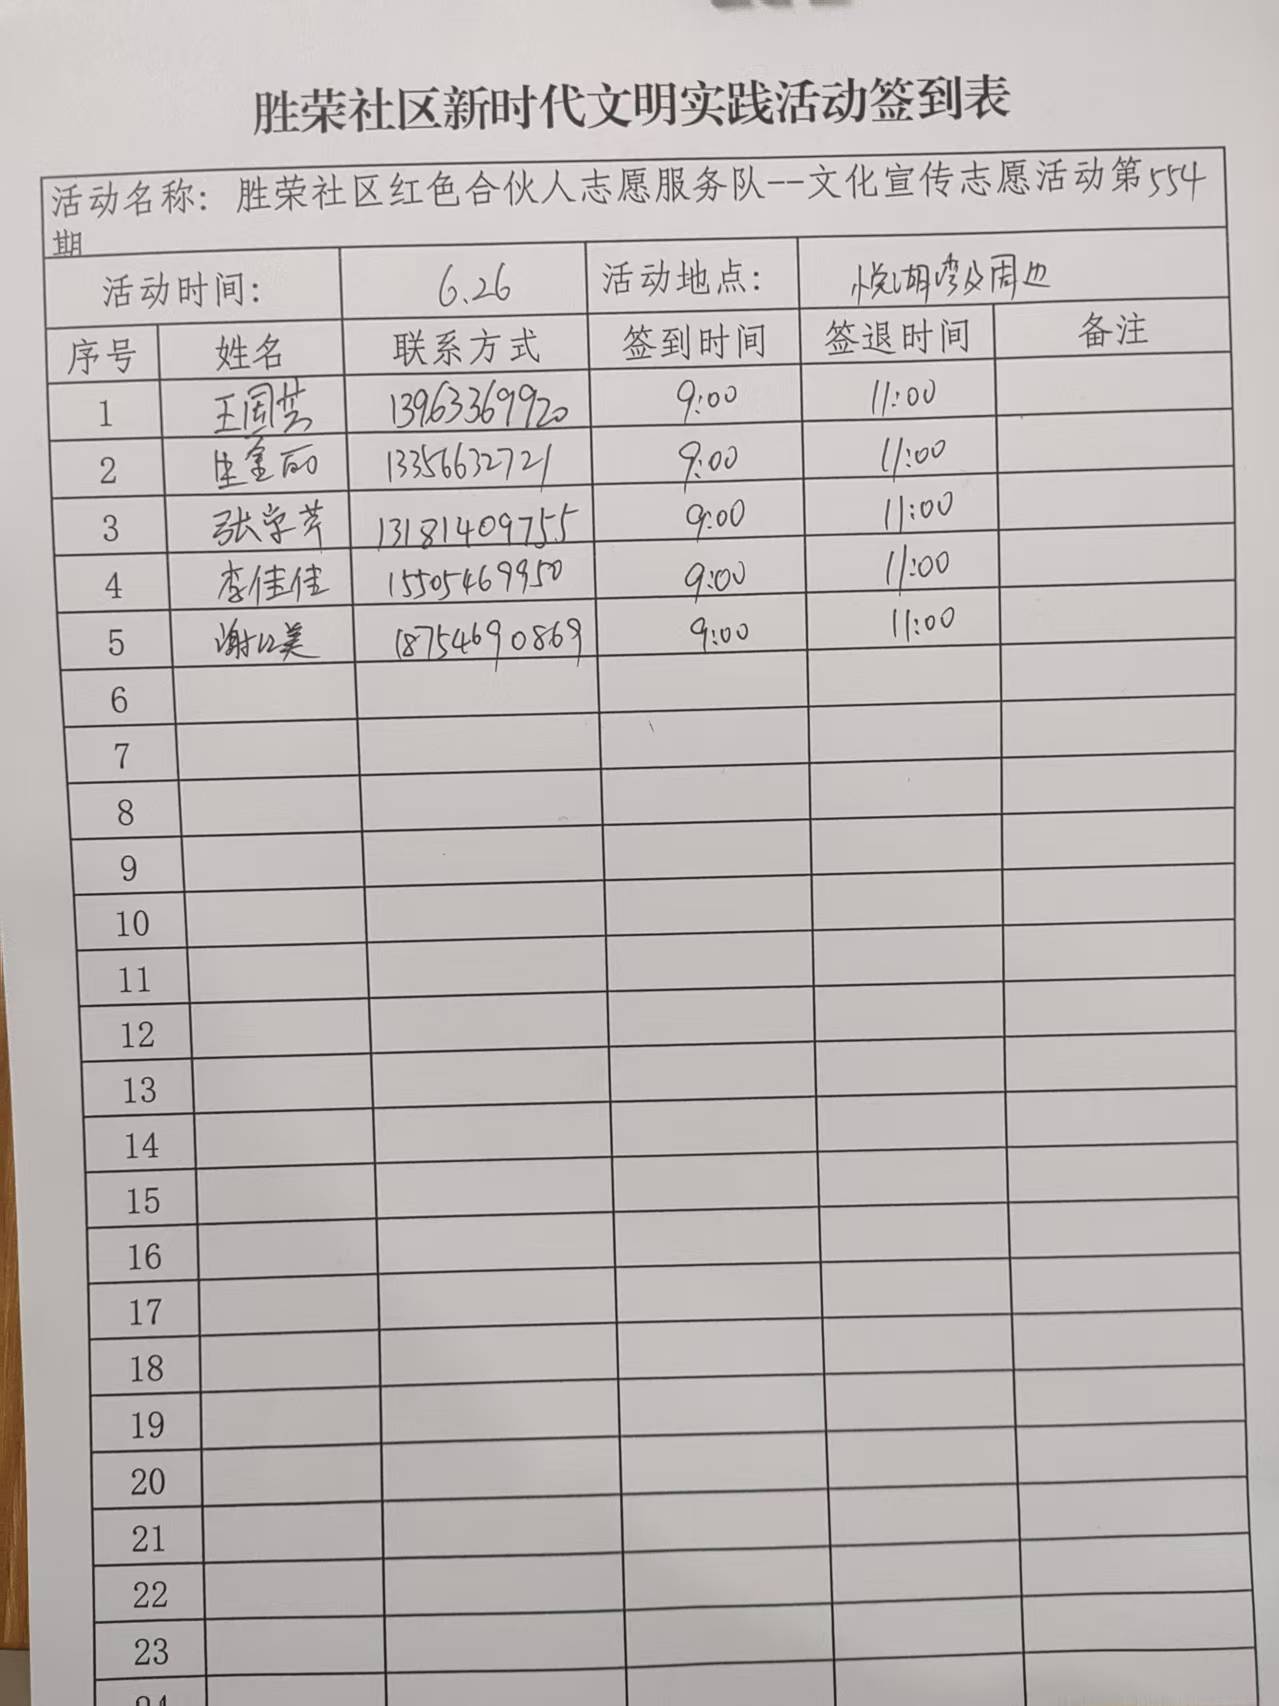 胜荣社区新时代文明实践活动签到表
活动名称：胜荣社区红色合伙人志愿服务队--文化宣传志愿活动第554
期
活动时间： 6.26 活动地点： 悦湖湾及周边
序号 姓名 联系方式 签到时间 签退时间 备注
1 王周芸 13963369920 9:00 11:00
2 13356632721 9:00 11:00
3 张学芹 13181409755 9:00 11:00
4 李佳佳 15505469950 9:00 11:00
5 谢红美 18754690869 9:00 11:00
6
7
8
9
10
11
12
13
14
15
16
17
18
19
20
21
22
23
24